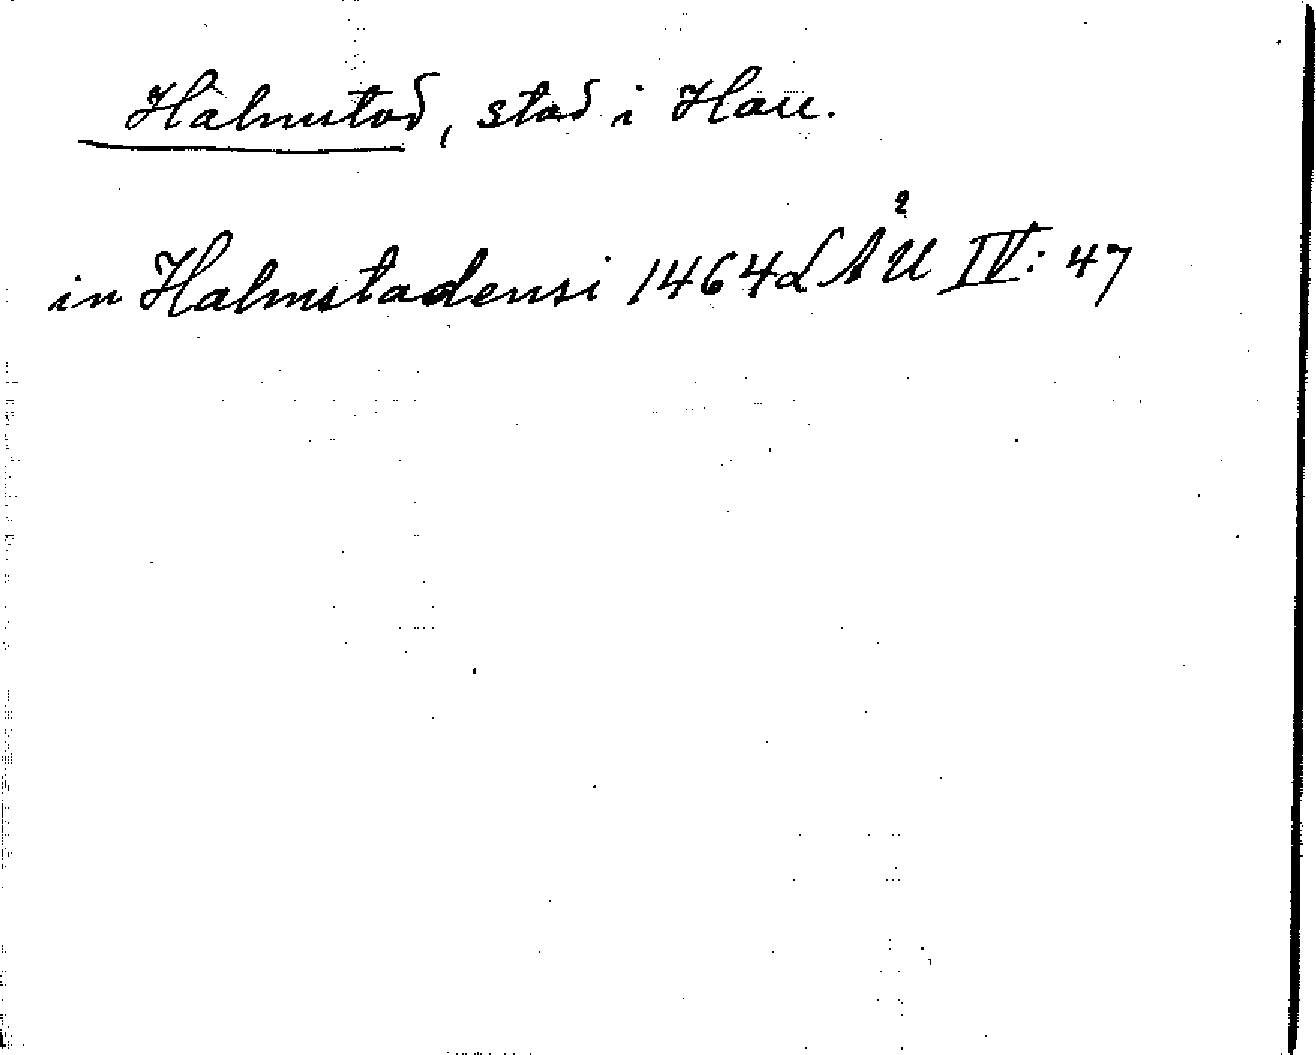 Halmstad, stad i Hall.
in Halmstadensi 1464 LÄU IV: 47